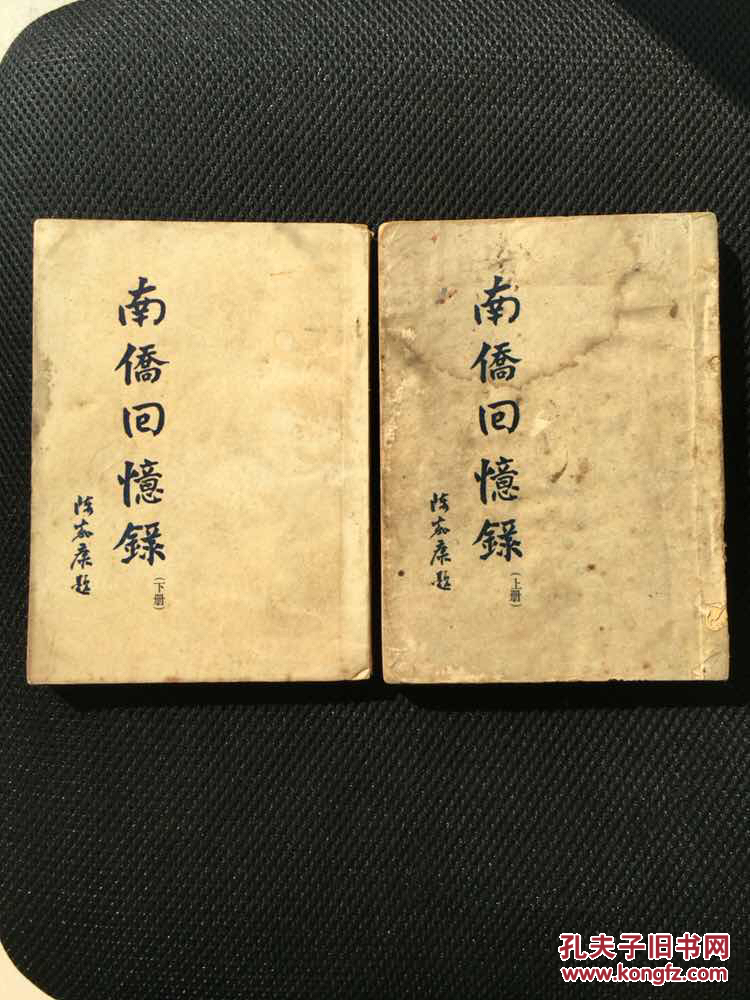 南僑回憶錄
(上册)
陈嘉庚題
南僑回憶錄
(下册)
陈嘉庚題
孔夫子旧书网
www.kongfz.com